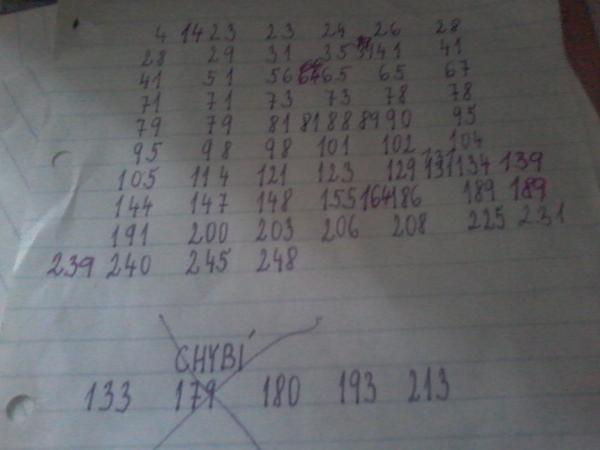 4 14 23 23 24 26 28
28 29 31 35 39 41 41
41 51 56 64 65 65 67
71 71 73 73 78 78
79 79 81 81 88 89 90 95
95 98 98 101 102 104
105 114 121 123 129 131 134 139
144 147 148 155 164 186 189 189
191 200 203 206 208 225 231
239 240 245 248
CHYBÍ
133 179 180 193 213